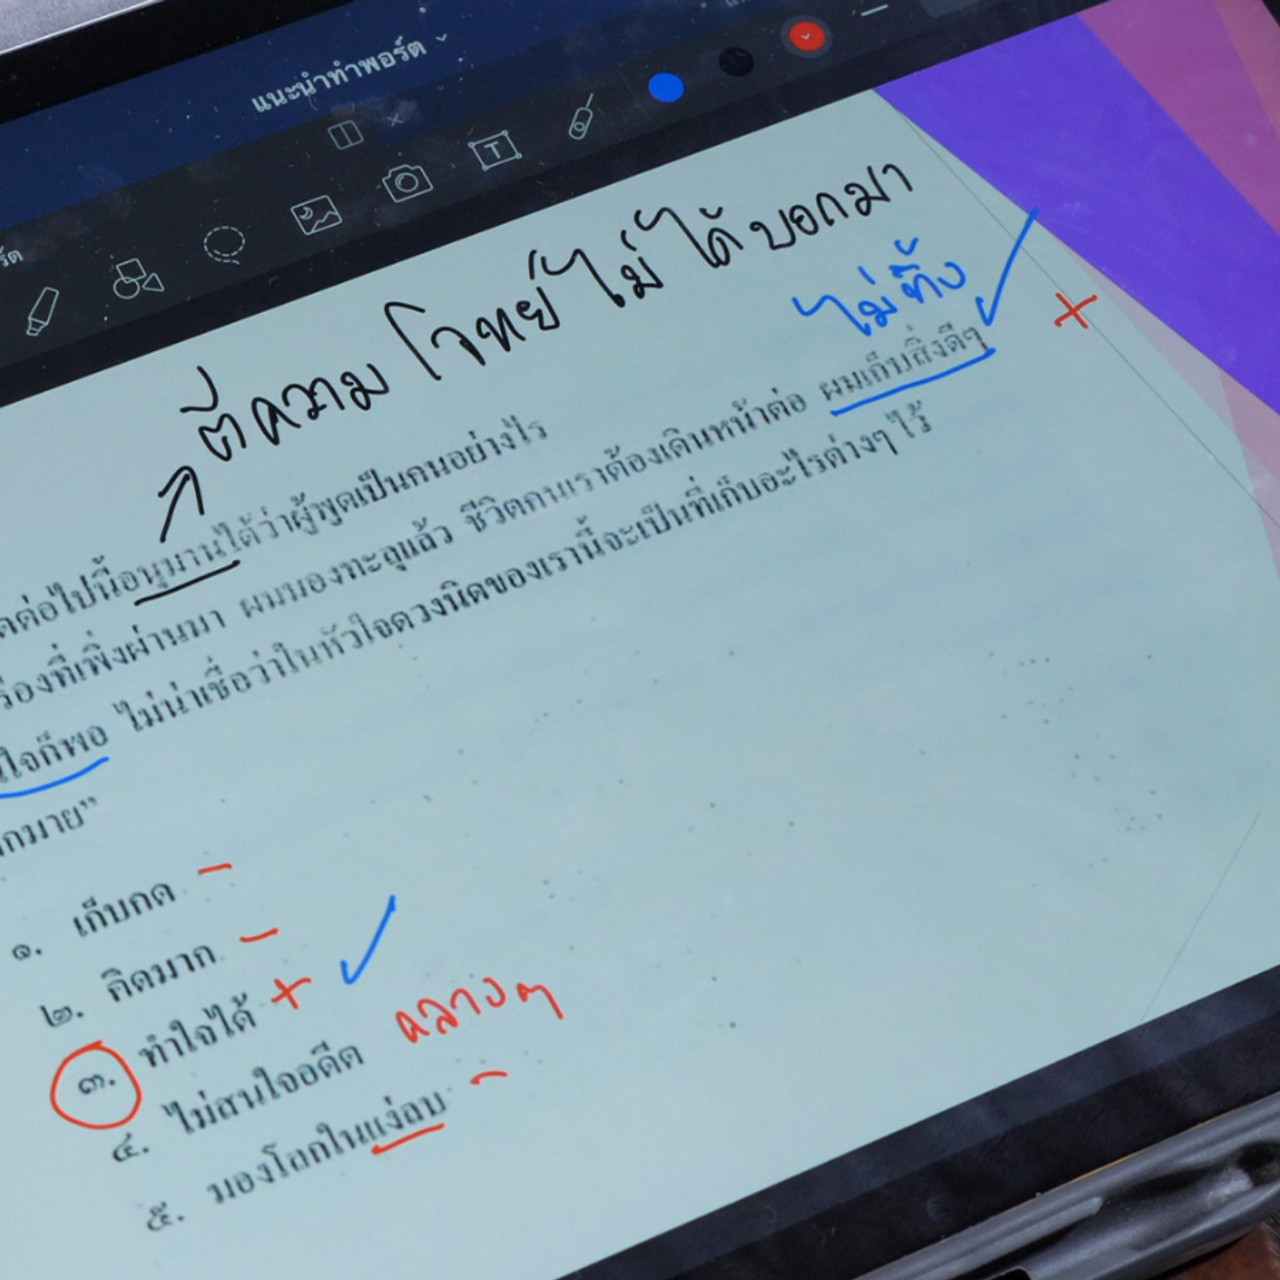 แนะนำทำพอร์ต
T
ตีความ โจทย์ไม่ได้บอกมา
ไม่ทิ้ง
ต่อไปนี้อนุมานได้ว่าผู้พูดเป็นคนอย่างไร
เรื่องที่เพิ่งผ่านมา ผมมองทะลุแล้ว ชีวิตคนเราต้องเดินหน้าต่อ ผมเก็บสิ่งดีๆ
ใจก็พอ ไม่น่าเชื่อว่าในหัวใจดวงนิดของเรานี้จะเป็นที่เก็บอะไรต่างๆ ไว้
มากมาย”
๑. เก็บกด -
๒. คิดมาก -
๓. ทำใจได้ +
๔. ไม่สนใจอดีต กลางๆ
๕. มองโลกในแง่ลบ -